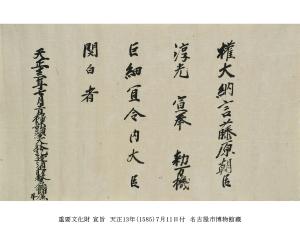 權大納言藤原朝臣
淳光宣奉 勅万機
巨細宜令内大臣
関白者
天正十三年七月十一日
重要文化財 宣旨 天正13年(1585)7月11日付 名古屋市博物館蔵